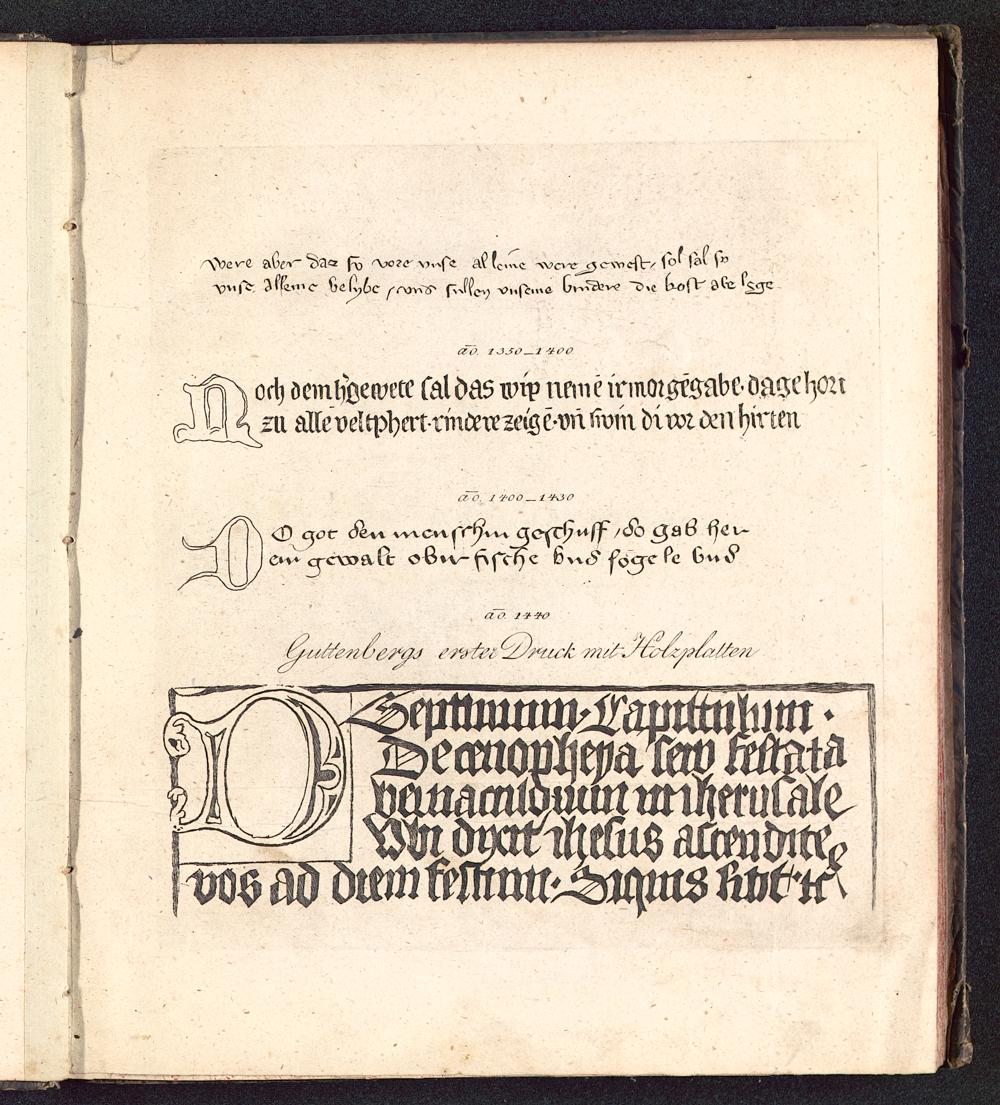 were aber daz so vore unse alleine were gewest, sol sal so
unse alleine belybe, und sullen unseme brudere die kost abe lege
ao. 1350_1400
Noch dem hgewete sal das wip nemē ir morgēgabe. da gehort
zu allē veltphert. rindere zeigē. vn̄ swin di vor den hirten
ao. 1400_1430
DO got den menschin geschuff, do gab her
em gewalt obir fische und fogele und
ao. 1440
Guttenbergs erster Druck mit Holzplatten
Septimum. Capittulum.
De cenophegia sew festa ta
bernaculorum in iherusale
Ubi dixit ihesus ascendite
vos ad diem festum. Siquis sitit. tc